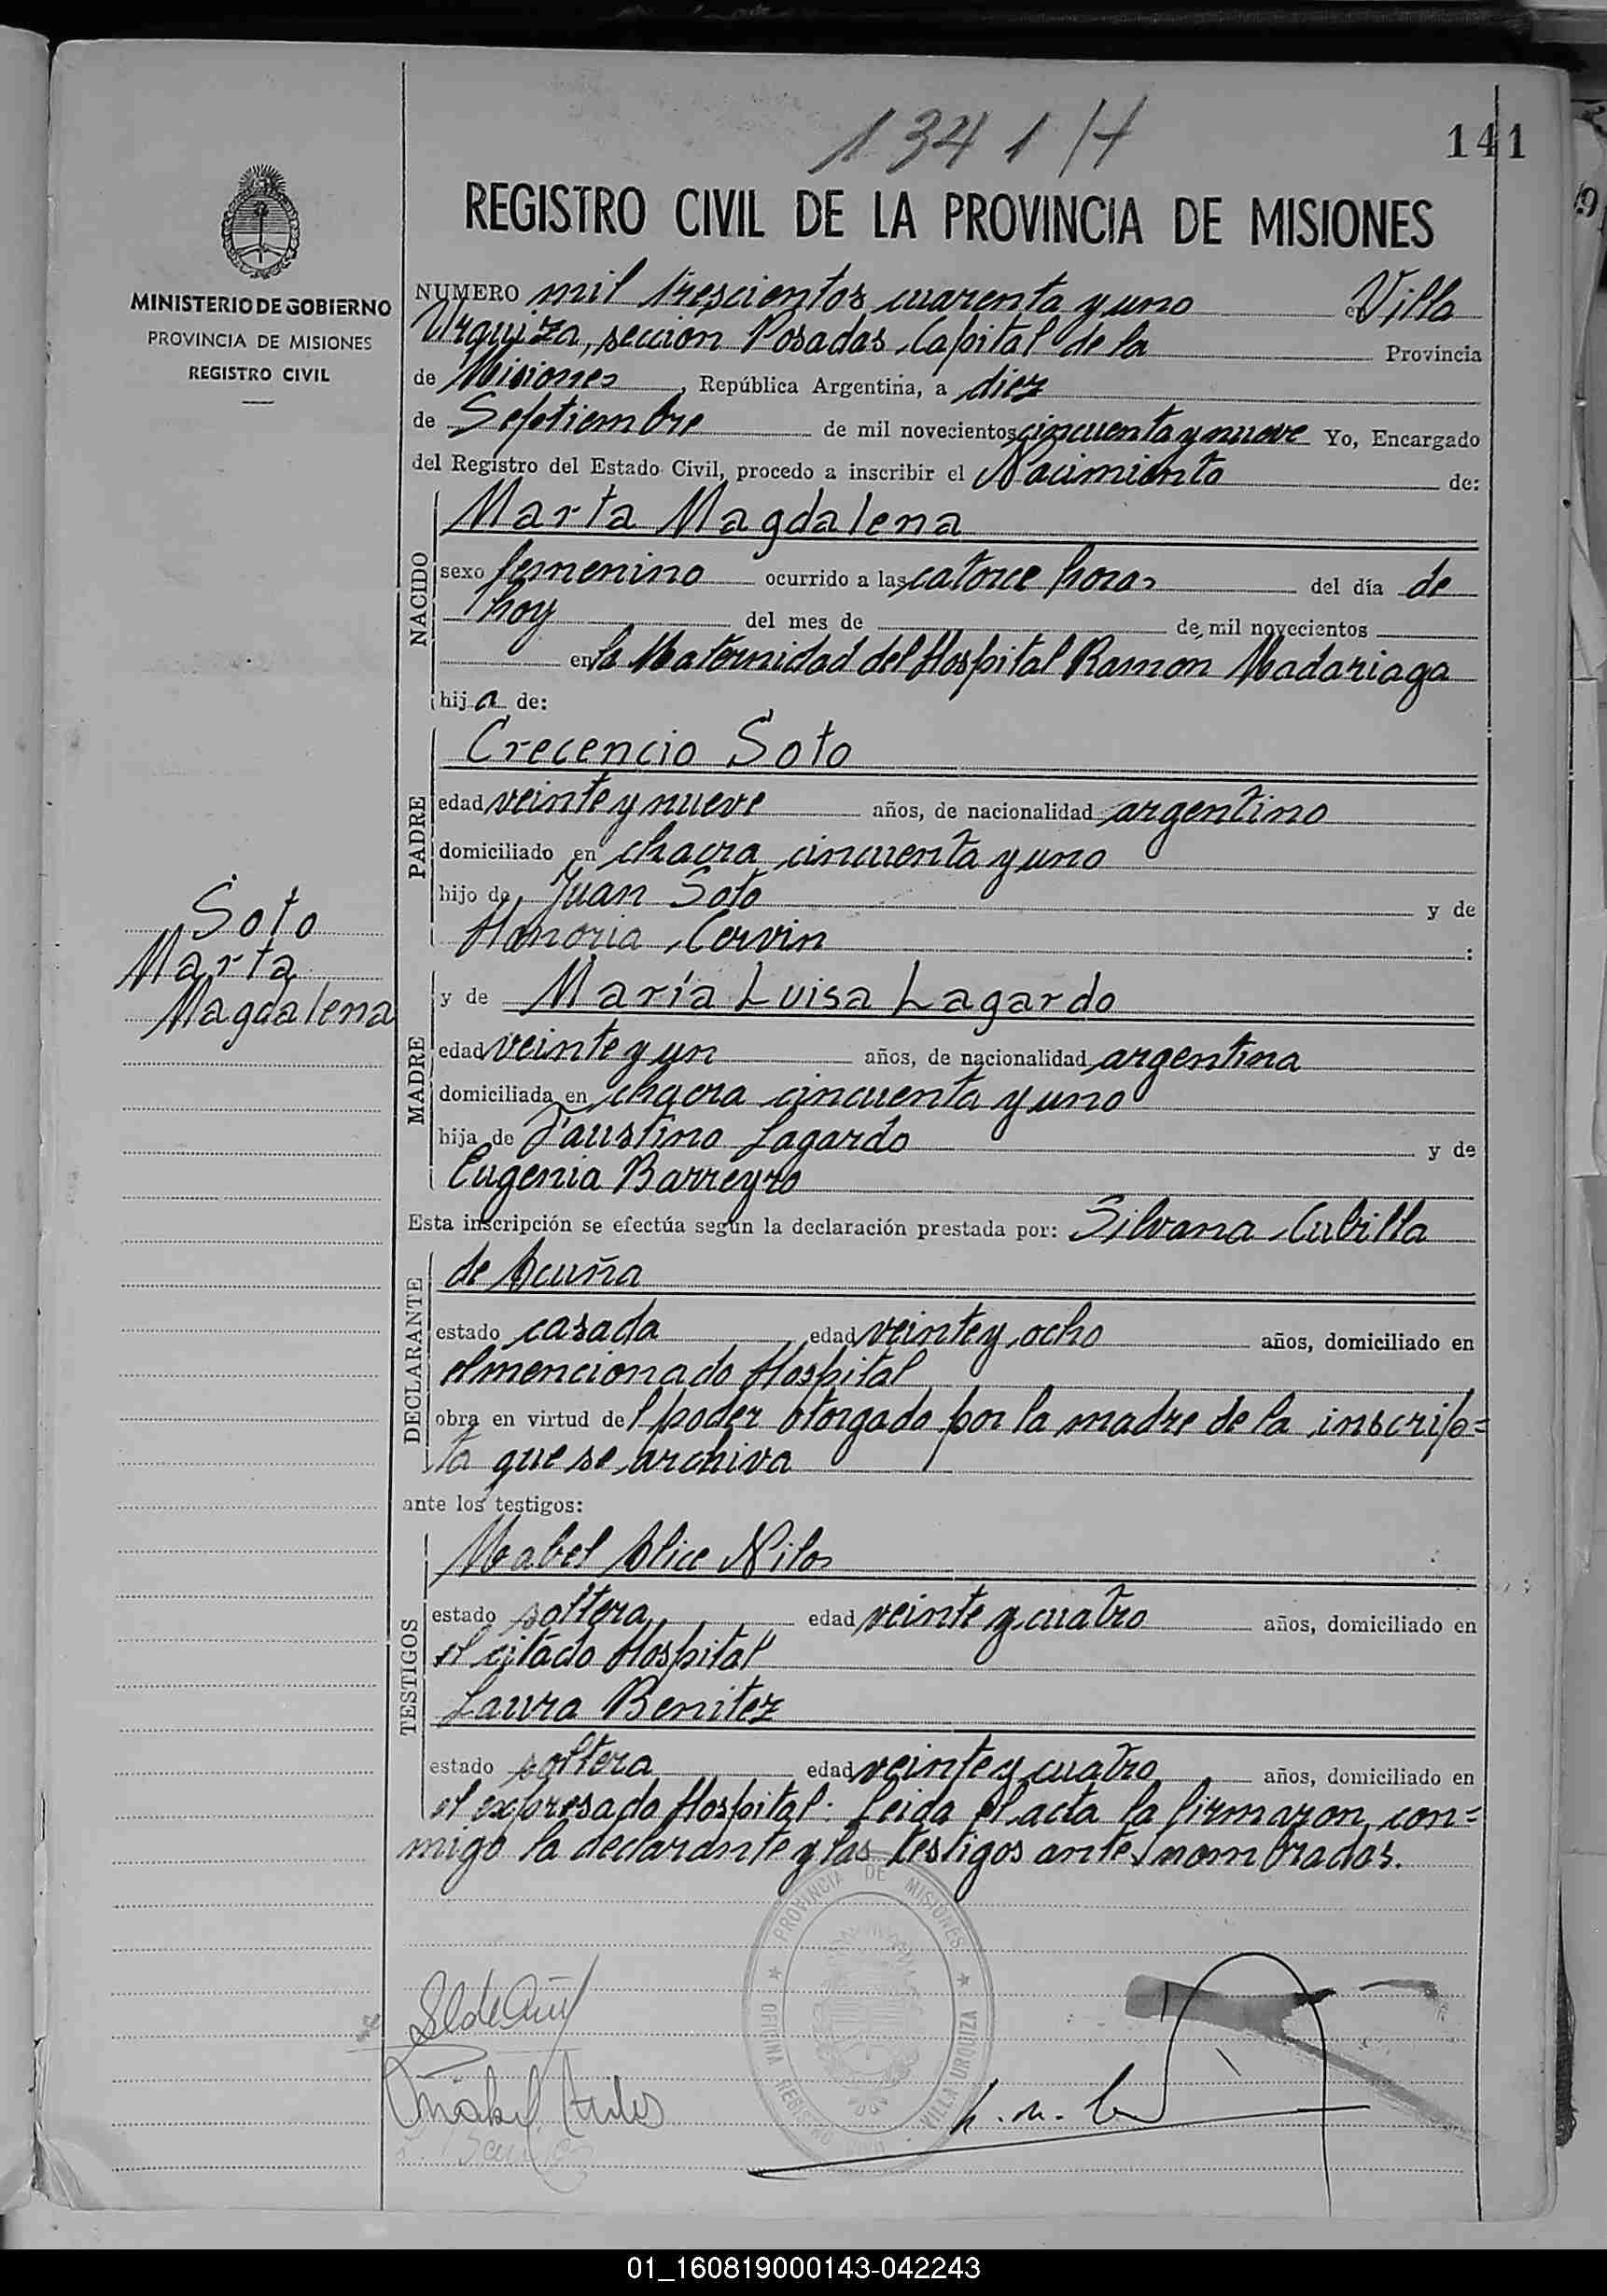 1341 H
141
REGISTRO CIVIL DE LA PROVINCIA DE MISIONES
MINISTERIO DE GOBIERNO
PROVINCIA DE MISIONES
REGISTRO CIVIL
NUMERO mil trescientos cuarenta y uno en Villa
Urquiza, seccion Posadas, Capital de la Provincia
de Misiones, República Argentina, a diez
de Septiembre de mil novecientos cincuenta y nueve Yo, Encargado
del Registro del Estado Civil, procedo a inscribir el Nacimiento de:
NACIDO
Marta Magdalena
sexo femenino ocurrido a las catorce horas del día de
hoy del mes de de mil novecientos
en la Maternidad del Hospital Ramon Madariaga
hija de:
PADRE
Crecencio Soto
edad veinte y nueve años, de nacionalidad argentino
domiciliado en chacra cincuenta y uno
hijo de Juan Soto y de
Honoria Cervin :
Soto
Marta
Magdalena
MADRE
y de María Luisa Lagardo
edad veinte y un años, de nacionalidad argentina
domiciliada en chacra cincuenta y uno
hija de Faustino Lagardo y de
Eugenia Barreyro
Esta inscripción se efectúa según la declaración prestada por: Silvana Cubilla
DECLARANTE
de Acuña
estado casada edad veinte y ocho años, domiciliado en
el mencionado Hospital
obra en virtud del poder otorgado por la madre de la inscrip=
ta que se archiva
ante los testigos:
TESTIGOS
Mabel Alice Nilos
estado soltera edad veinte y cuatro años, domiciliado en
el citado Hospital
Laura Benitez
estado soltera edad veinte y cuatro años, domiciliado en
el expresado Hospital. Leida el acta la firmaron con=
migo la declarante y las testigos ante nombradas.
PROVINCIA DE MISIONES
OFICINA REGISTRO CIVIL VILLA URQUIZA
01_160819000143-042243